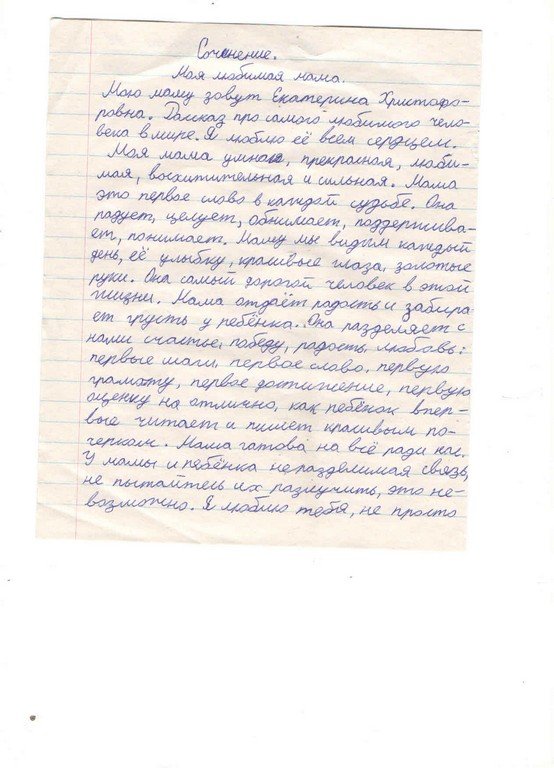 Сочинение.
Моя любимая мама.
Мою маму зовут Екатерина Христофо-
ровна. Рассказ про самого любимого чело-
века в мире. Я люблю её всем сердцем.
Моя мама умная, прекрасная, люби-
мая, восхитительная и сильная. Мама
это первое слово в каждой судьбе. Она
радует, целует, обнимает, поддержива-
ет, понимает. Маму мы видим каждый
день, её улыбку, красивые глаза, золотые
руки. Она самый дорогой человек в этой
жизни. Мама отдаёт радость и забира-
ет грусть у ребёнка. Она разделяет с
нами счастье, победу, радость, любовь:
первые шаги, первое слово, первую
грамоту, первое достижение, первую
оценку на отлично, как ребёнок впер-
вые читает и пишет красивым по-
черком. Мама готова на всё ради нас.
У мамы и ребёнка неразделимая связь,
не пытайтесь их разлучить, это не-
возможно. Я люблю тебя, не просто